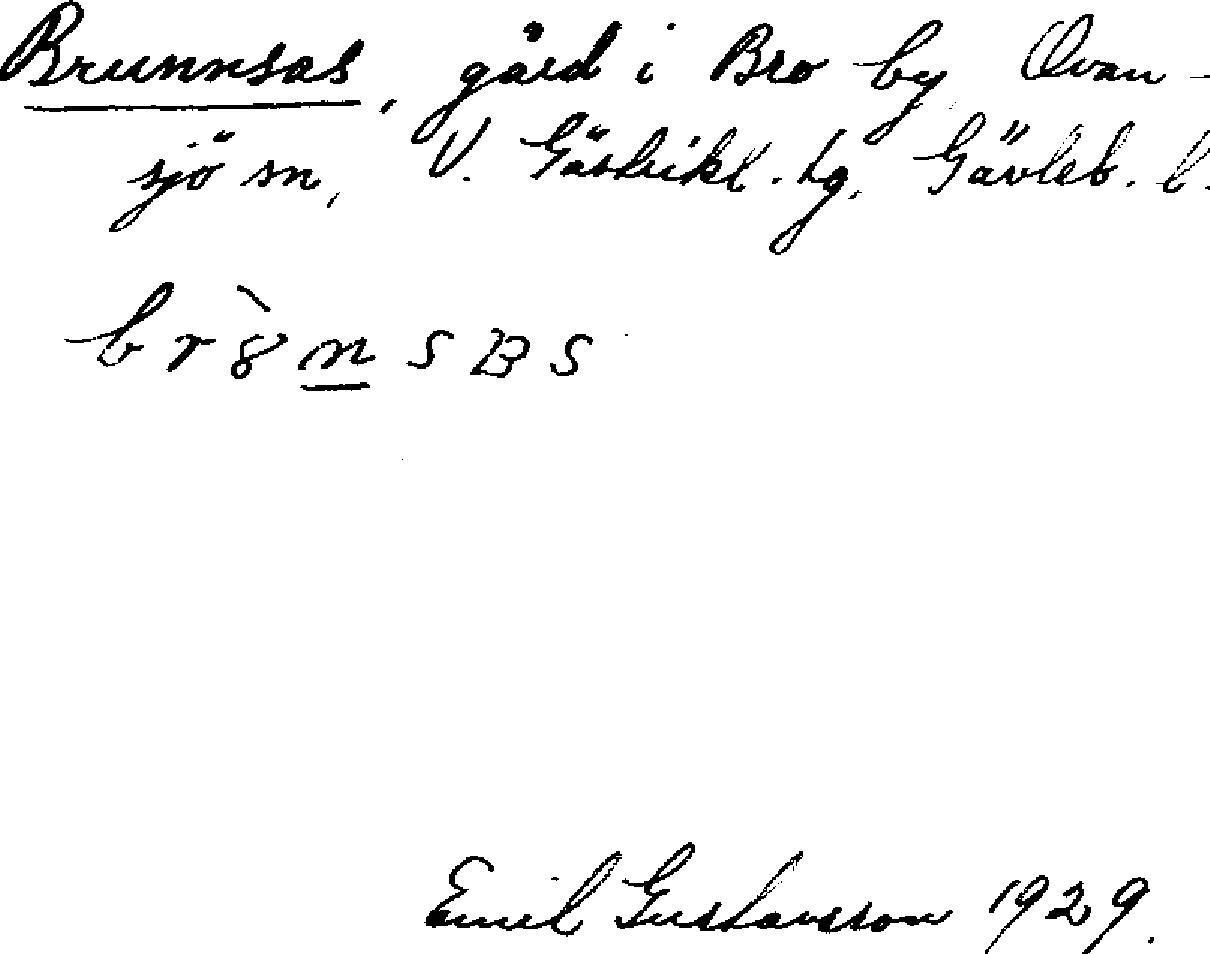 Brunnsas, gård i Bro by Ovan-
sjö sn, V. Gästrikl. hg, Gävleb. l.
br8̀n̲sBs
Emil Gustavsson 1929.